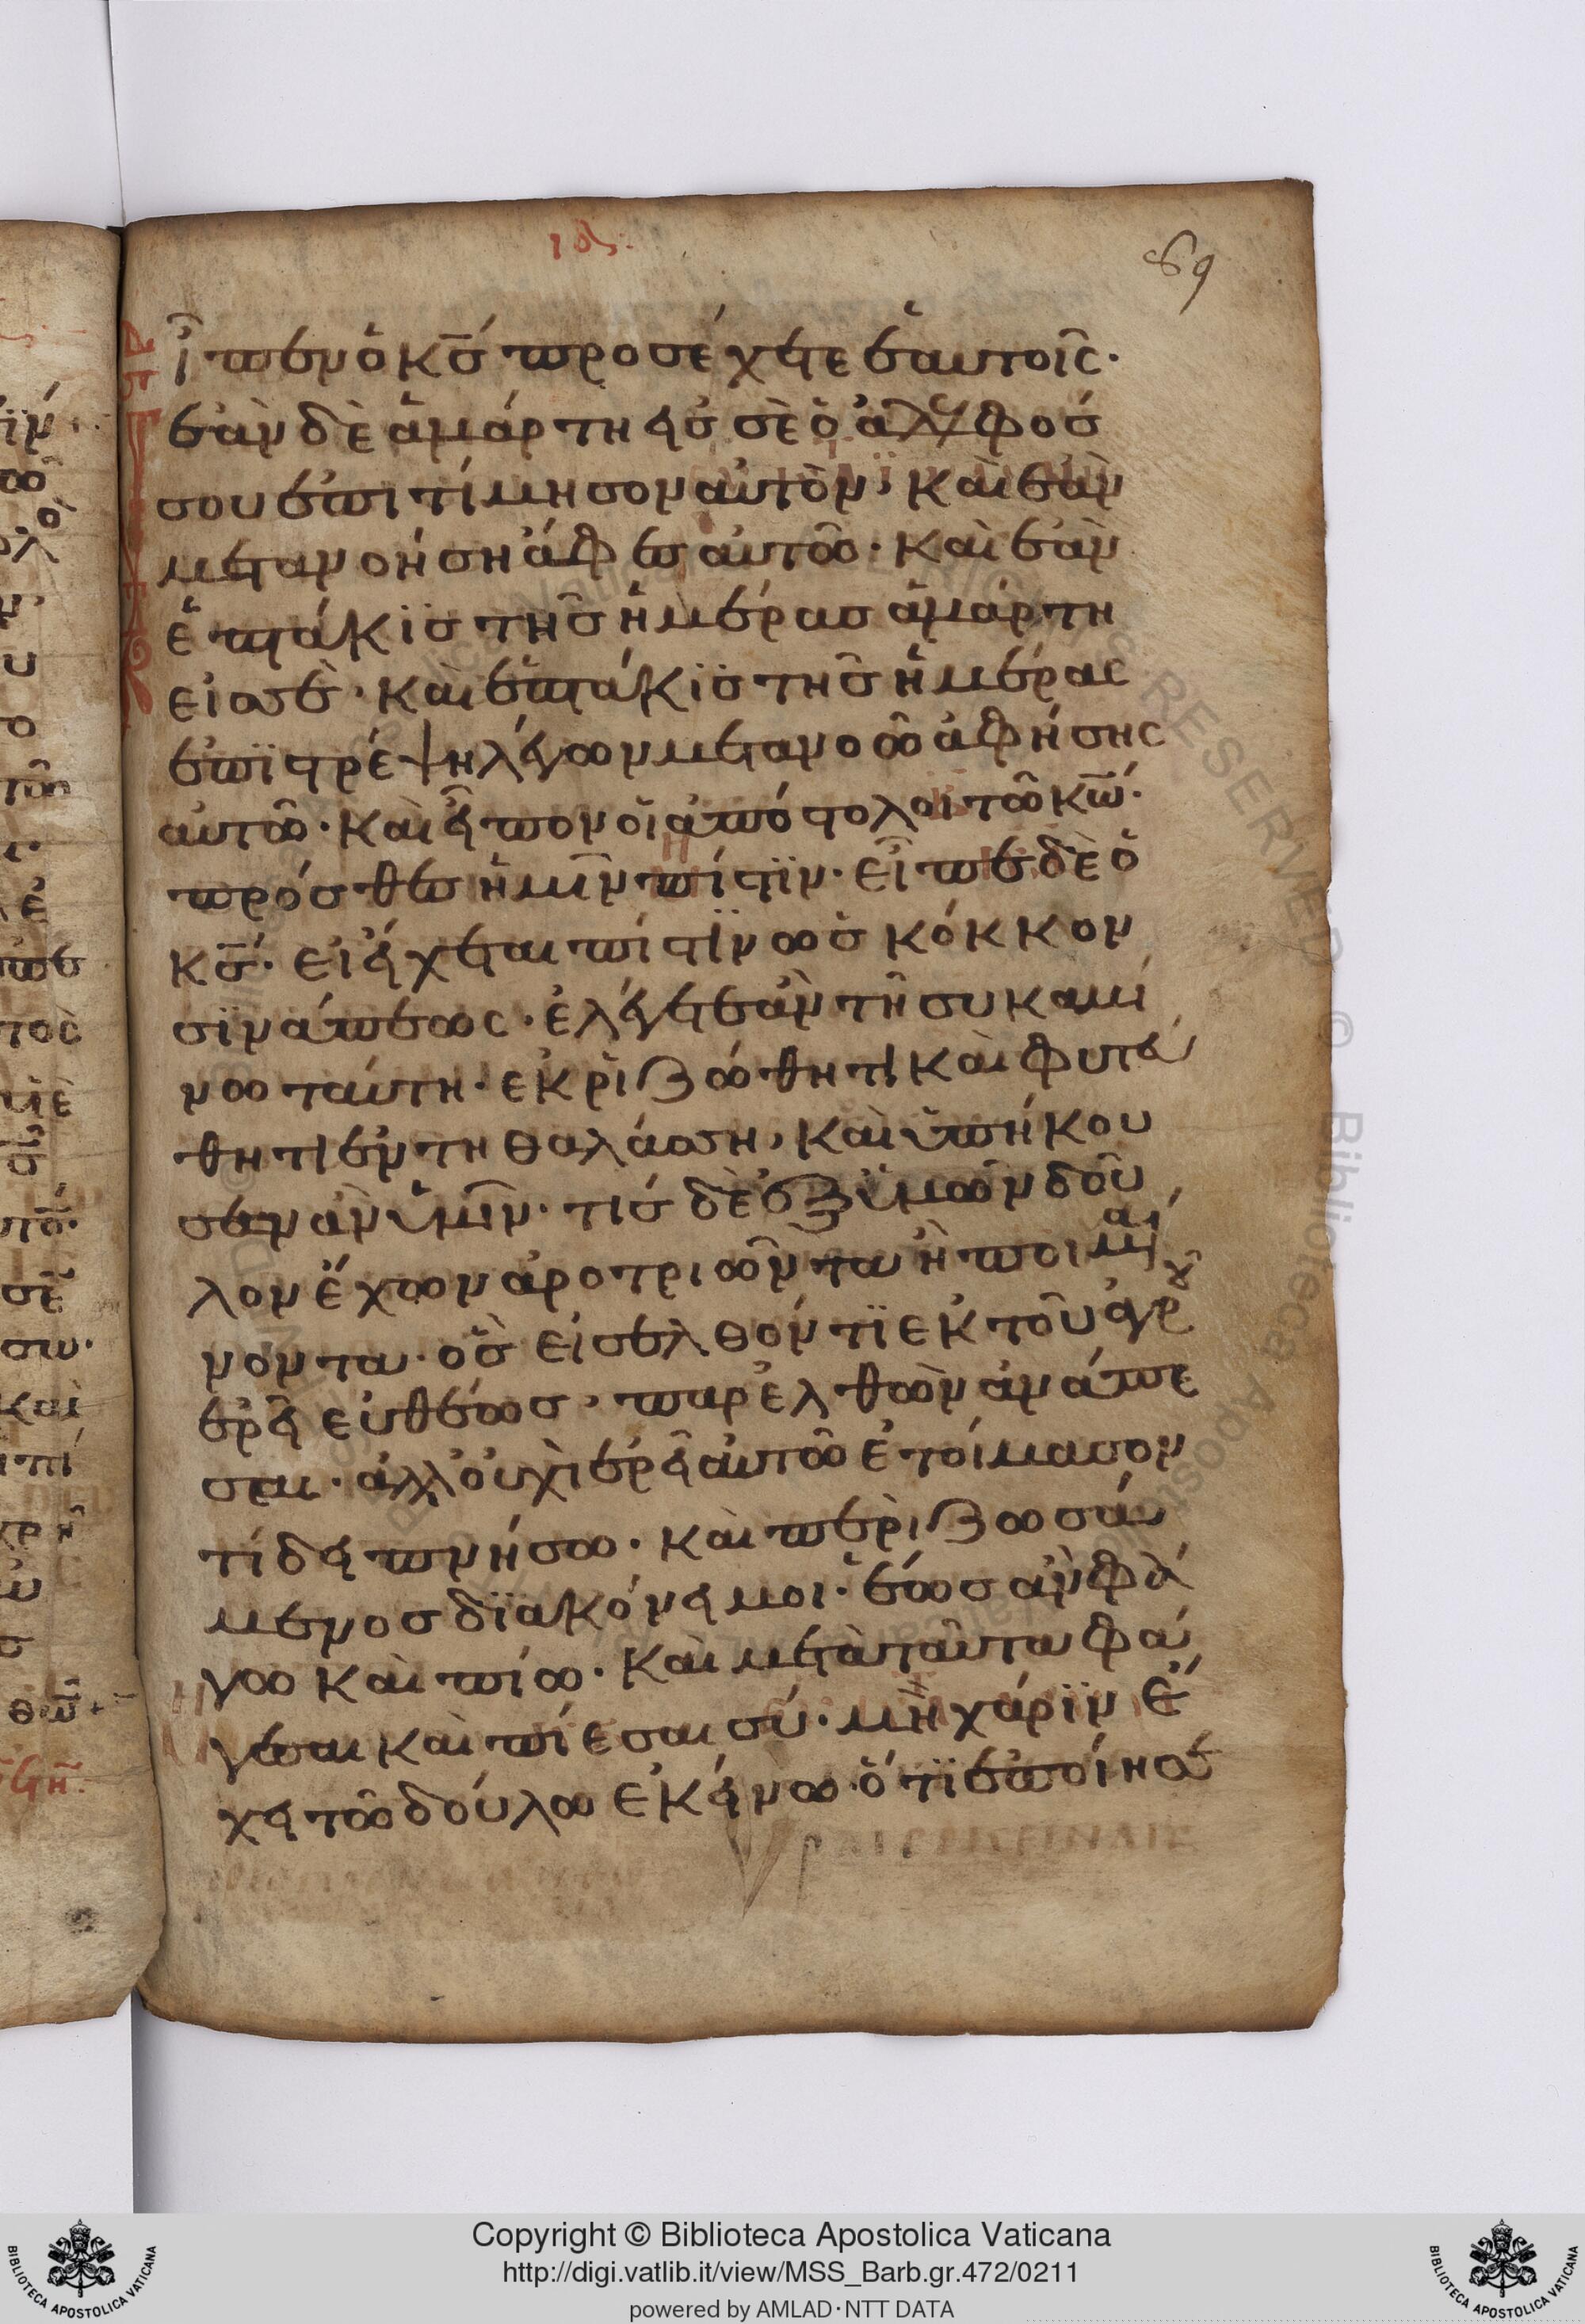 69
Εἶπεν ὁ κ̅ς̅ προσέχετε ἑαυτοῖς·
ἐὰν δὲ ἁμάρτη εἰς σὲ ὁ ἀδελφος
σου ἐπιτίμησον αὐτὸν, καὶ ἐὰν
μετανοήση ἄφες αὐτῶ· καὶ ἐὰν
ἑπτάκϊς τῆς ἡμέρας ἁμάρτη
εἰς σὲ· καὶ ἑπτάκϊς τῆς ἡμέρας
ἐπϊστρέψη λέγων μετανοῶ ἀφήσης
αὐτῶ· καὶ εἶπον οἱ ἀπόστολοι τῶ κ̅ω̅·
πρόσθες ἡμῖν πίστϊν· εἶπε δὲ ὁ
κ̅ς̅· εἰ ἔχεται πίστϊν ὡς κόκκον
σϊνάπεως· ἐλέγετε ἂν τῆ συκαμί
νω ταύτη· ἐκρὶζώθητι καὶ φυτεύ
θητι ἐν τη θαλάσση, καὶ ὑπήκου
σεν ἂν ὑμῖν· τίς δὲ ἐξ ὑμῶν δοῦ
λον ἔχων ἀροτριῶντα ἢ ποιμαί
νοντα· ὃς εἰσελθόντϊ ἐκ τοῦ ἀγροῦ
ἐρεῖ εὐθέως, παρελθὼν ἀνάπε
σαι· ἀλλ' οὐχὶ ἐρεῖ αὐτῶ ἑτοίμασον
τί δειπνήσω· καὶ περὶζωσά
μενος δϊακόνει μοι· ἕως ἂν φά
γω καὶ πίω· καὶ μετὰ ταῦτα φά
γεσαι καὶ πίεσαι σύ· μὴ χάρϊν ἔ
χει τῶ δούλω ἐκείνω· ὅτϊ ἐποίησε
Copyright © Biblioteca Apostolica Vaticana
http://digi.vatlib.it/view/MSS_Barb.gr.472/0211
powered by AMLAD·NTT DATA
BIBLIOTECA APOSTOLICA VATICANA
BIBLIOTECA APOSTOLICA VATICANA